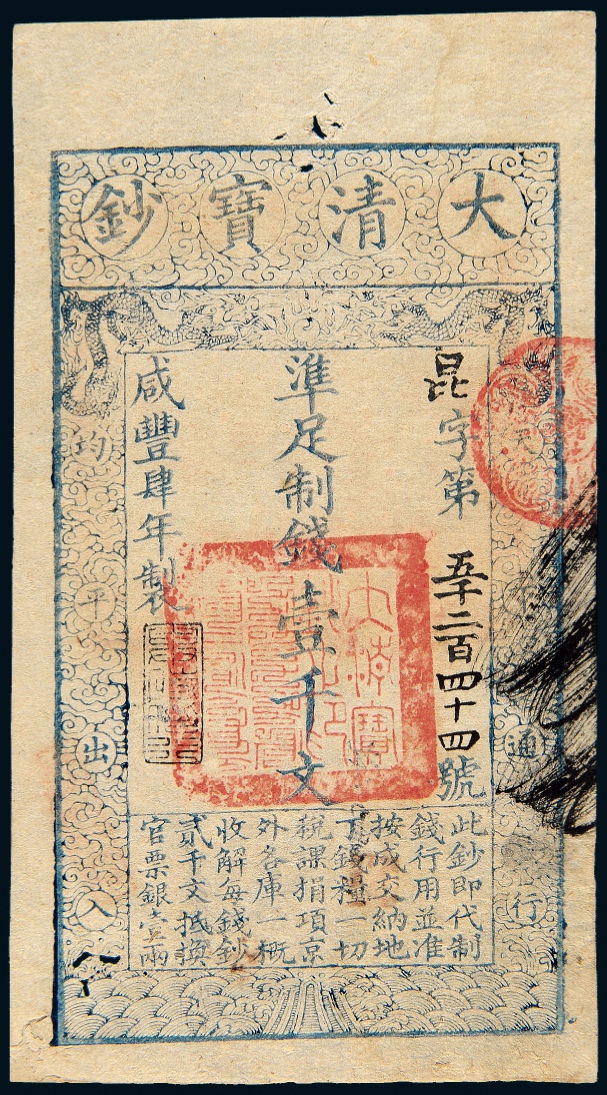 大清寶鈔
天下通行
均平出入
昆字第五千二百四十四號
準足制錢壹千文
咸豐肆年製
大清寶
鈔之印
此鈔即代制
錢行用並准
按成交納地
丁錢糧一切
稅課捐項京
外各庫一概
收解每錢鈔
貳千文抵換
官票銀壹兩